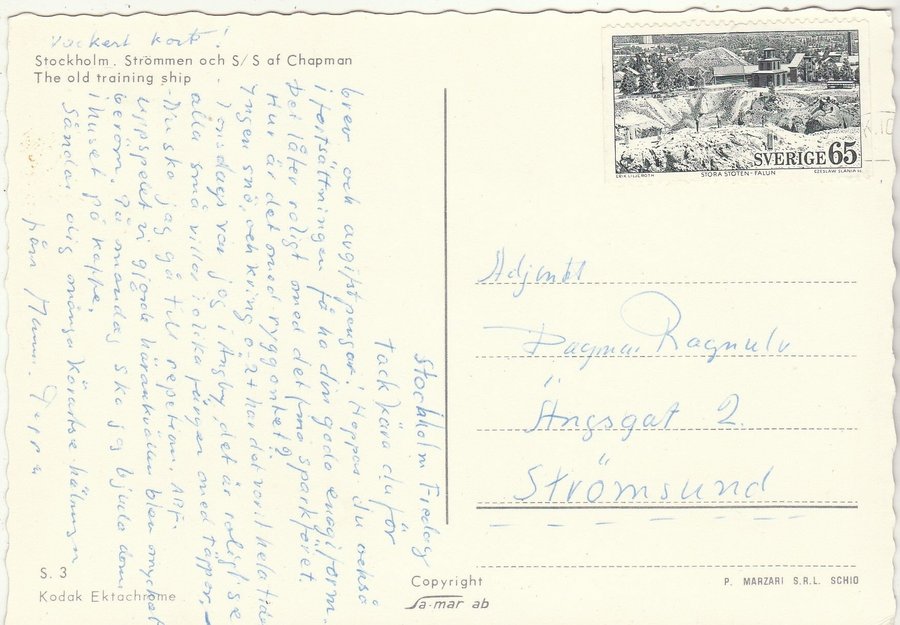 Vackert kort!
Stockholm. Strömmen och S/S af Chapman
The old training ship
Stockholm Fredag
Tack kära du för
brev och avgiftpengar. Hoppas du också
i fortsättningen få ha din goda energi form.
Det låter roligt med det fina sparkföret.
Hur är det med ryggontet?
Ingen snö, och kring 0-2+ har det varit hela tiden
Onsdags var jag i Ängby, det är roligt se
alla små villor i olika färger med täppor. –
Nu ska jag gå till repetion. ABF.
uppspelet vi gjorde häromkvällen blev mycket
beröm. På måndag ska jag bjuda dom
i huset på kaffe.
Sänder dig många hälsningar
från
S. 3
Kodak Ektachrome
SVERIGE 65
STORA STÖTEN - FALUN
CZESLAW SLANIA SC
Adjentl
Dagmar Ragnulv
Ängsgat 2.
Strömsund
Copyright
Sa-mar ab
P. MARZARI S.R.L. SCHIO